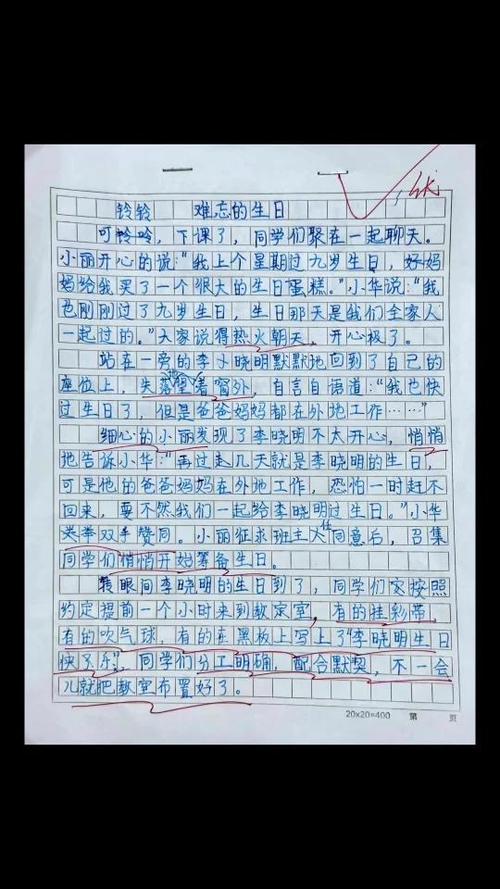 优
铃铃 难忘的生日
可铃呤，下课了，同学们聚在一起聊天。
小丽开心的说："我上个星期过九岁生日，妈
妈给我买了一个很大的生日蛋糕。"小华说："我
也刚刚过了九岁生日，生日那天是我们全家人
一起过的。"大家说得热火朝天，开心极了。
站在一旁的李晓明默默地回到了自己的
座位上，失落望着窗外，自言自语道："我也快
过生日了，但是爸爸妈妈都在外地工作……"
细心的小丽发现了李晓明不太开心，悄悄
地告诉小华："再过几天就是李晓明的生日，
可是他的爸爸妈妈在外地工作，恐怕一时赶不
回来，要不然我们一起给李晓明过生日。"小华
举双手赞同。小丽征求班主任同意后，召集
同学们悄悄开始筹备生日。
转眼间李晓明的生日到了，同学们按照
约定提前一个小时来到教室，有的挂彩带，
有的吹气球，有的在黑板上写上了"李晓明生日
快乐"，同学们分工明确，配合默契，不一会
儿就把教室布置好了。
20×20=400 第 页